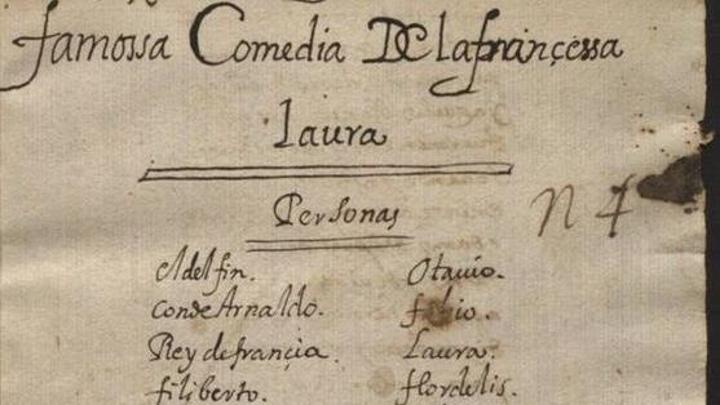 famossa Comedia De la françessa
Laura
Personas
N 4
El delfin. Otauio.
Conde Arnaldo. fabio.
Rey de françia. Laura.
filiberto. flordelis.